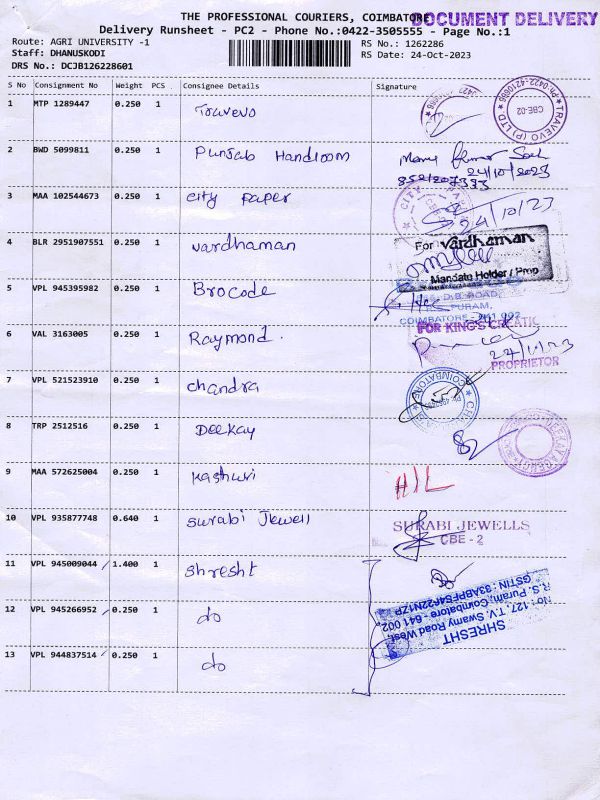 THE PROFESSIONAL COURIERS, COIMBATORE
DOCUMENT DELIVERY
Delivery Runsheet - PC2 - Phone No.:0422-3505555 - Page No.:1
Route: AGRI UNIVERSITY -1
RS No.: 1262286
Staff: DHANUSKODI
RS Date: 24-Oct-2023
DRS No.: DCJB126228601
S No Consignment No Weight PCS Consignee Details Signature
1 MTP 1289447 0.250 1 Travevo
TRAVEVO (P) LTD CBE-02
2 BWD 5099811 0.250 1 Punjab Handloom
24/10/2023
3 MAA 102544673 0.250 1 city paper
CITY
24/10/23
4 BLR 2951907551 0.250 1 vardhaman
For Vardhaman
Mandate Holder / Prop
5 VPL 945395982 0.250 1 Brocode
D.B. ROAD,
PURAM,
COIMBATORE - 641 002
6 VAL 3163005 0.250 1 Raymond.
FOR KING'S
PROPRIETOR
7 VPL 521523910 0.250 1 chandra
COIMBATORE
8 TRP 2512516 0.250 1 Deekay
DEEKAY AGENCY
9 MAA 572625004 0.250 1 Kashuri
10 VPL 935877748 0.640 1 Surabi Jewell
SURABI JEWELLS
CBE - 2
11 VPL 945009044 1.400 1 Shresht
SHRESHT
No : 127, T.V. Swamy Road West,
R.S. Puram, Coimbatore - 641 002
GSTIN : 33ABPFS4F22N1ZP
12 VPL 945266952 0.250 1 do
13 VPL 944837514 0.250 1 do